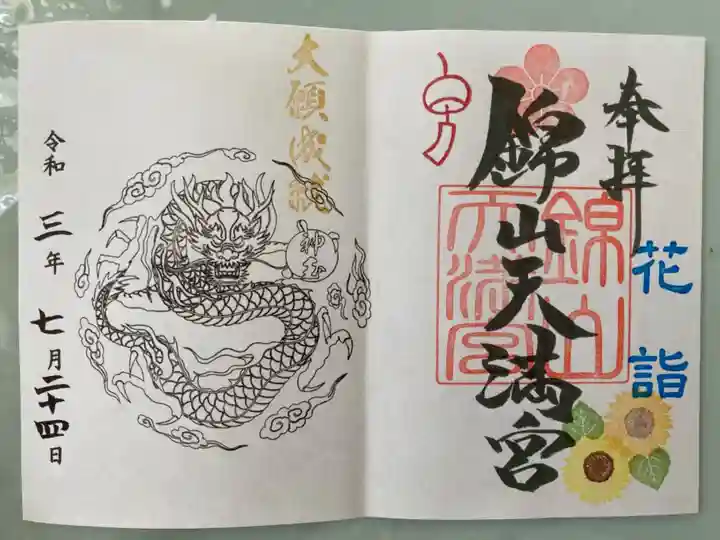 奉拝
花詣
錦山天満宮
錦山天満宮
大願成就
神玉
令和三年七月二十四日